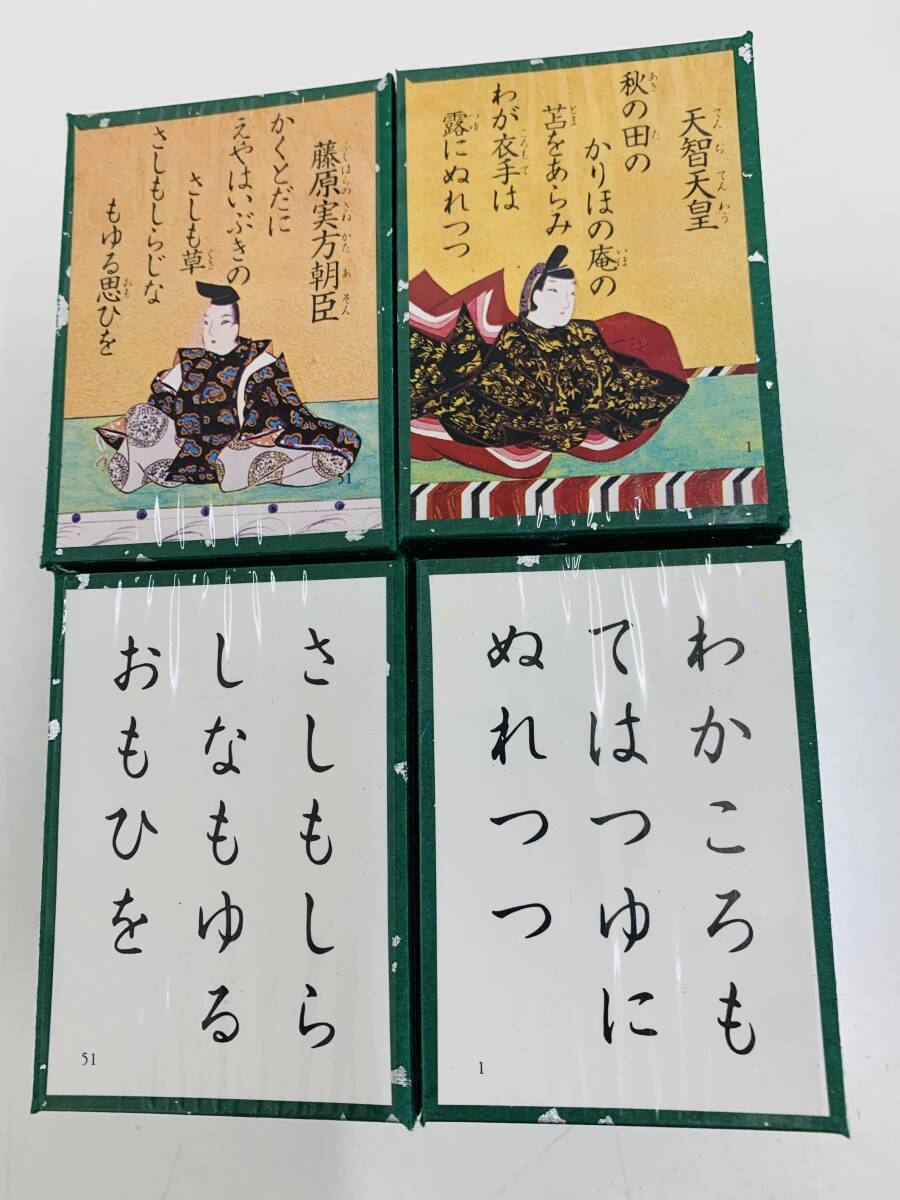 天智天皇
秋の田の
かりほの庵の
苫をあらみ
わが衣手は
露にぬれつつ
1
藤原実方朝臣
かくとだに
えやはいぶきの
さしも草
さしもしらじな
もゆる思ひを
51
わかころも
てはつゆに
ぬれつつ
1
さしもしら
しなもゆる
おもひを
51